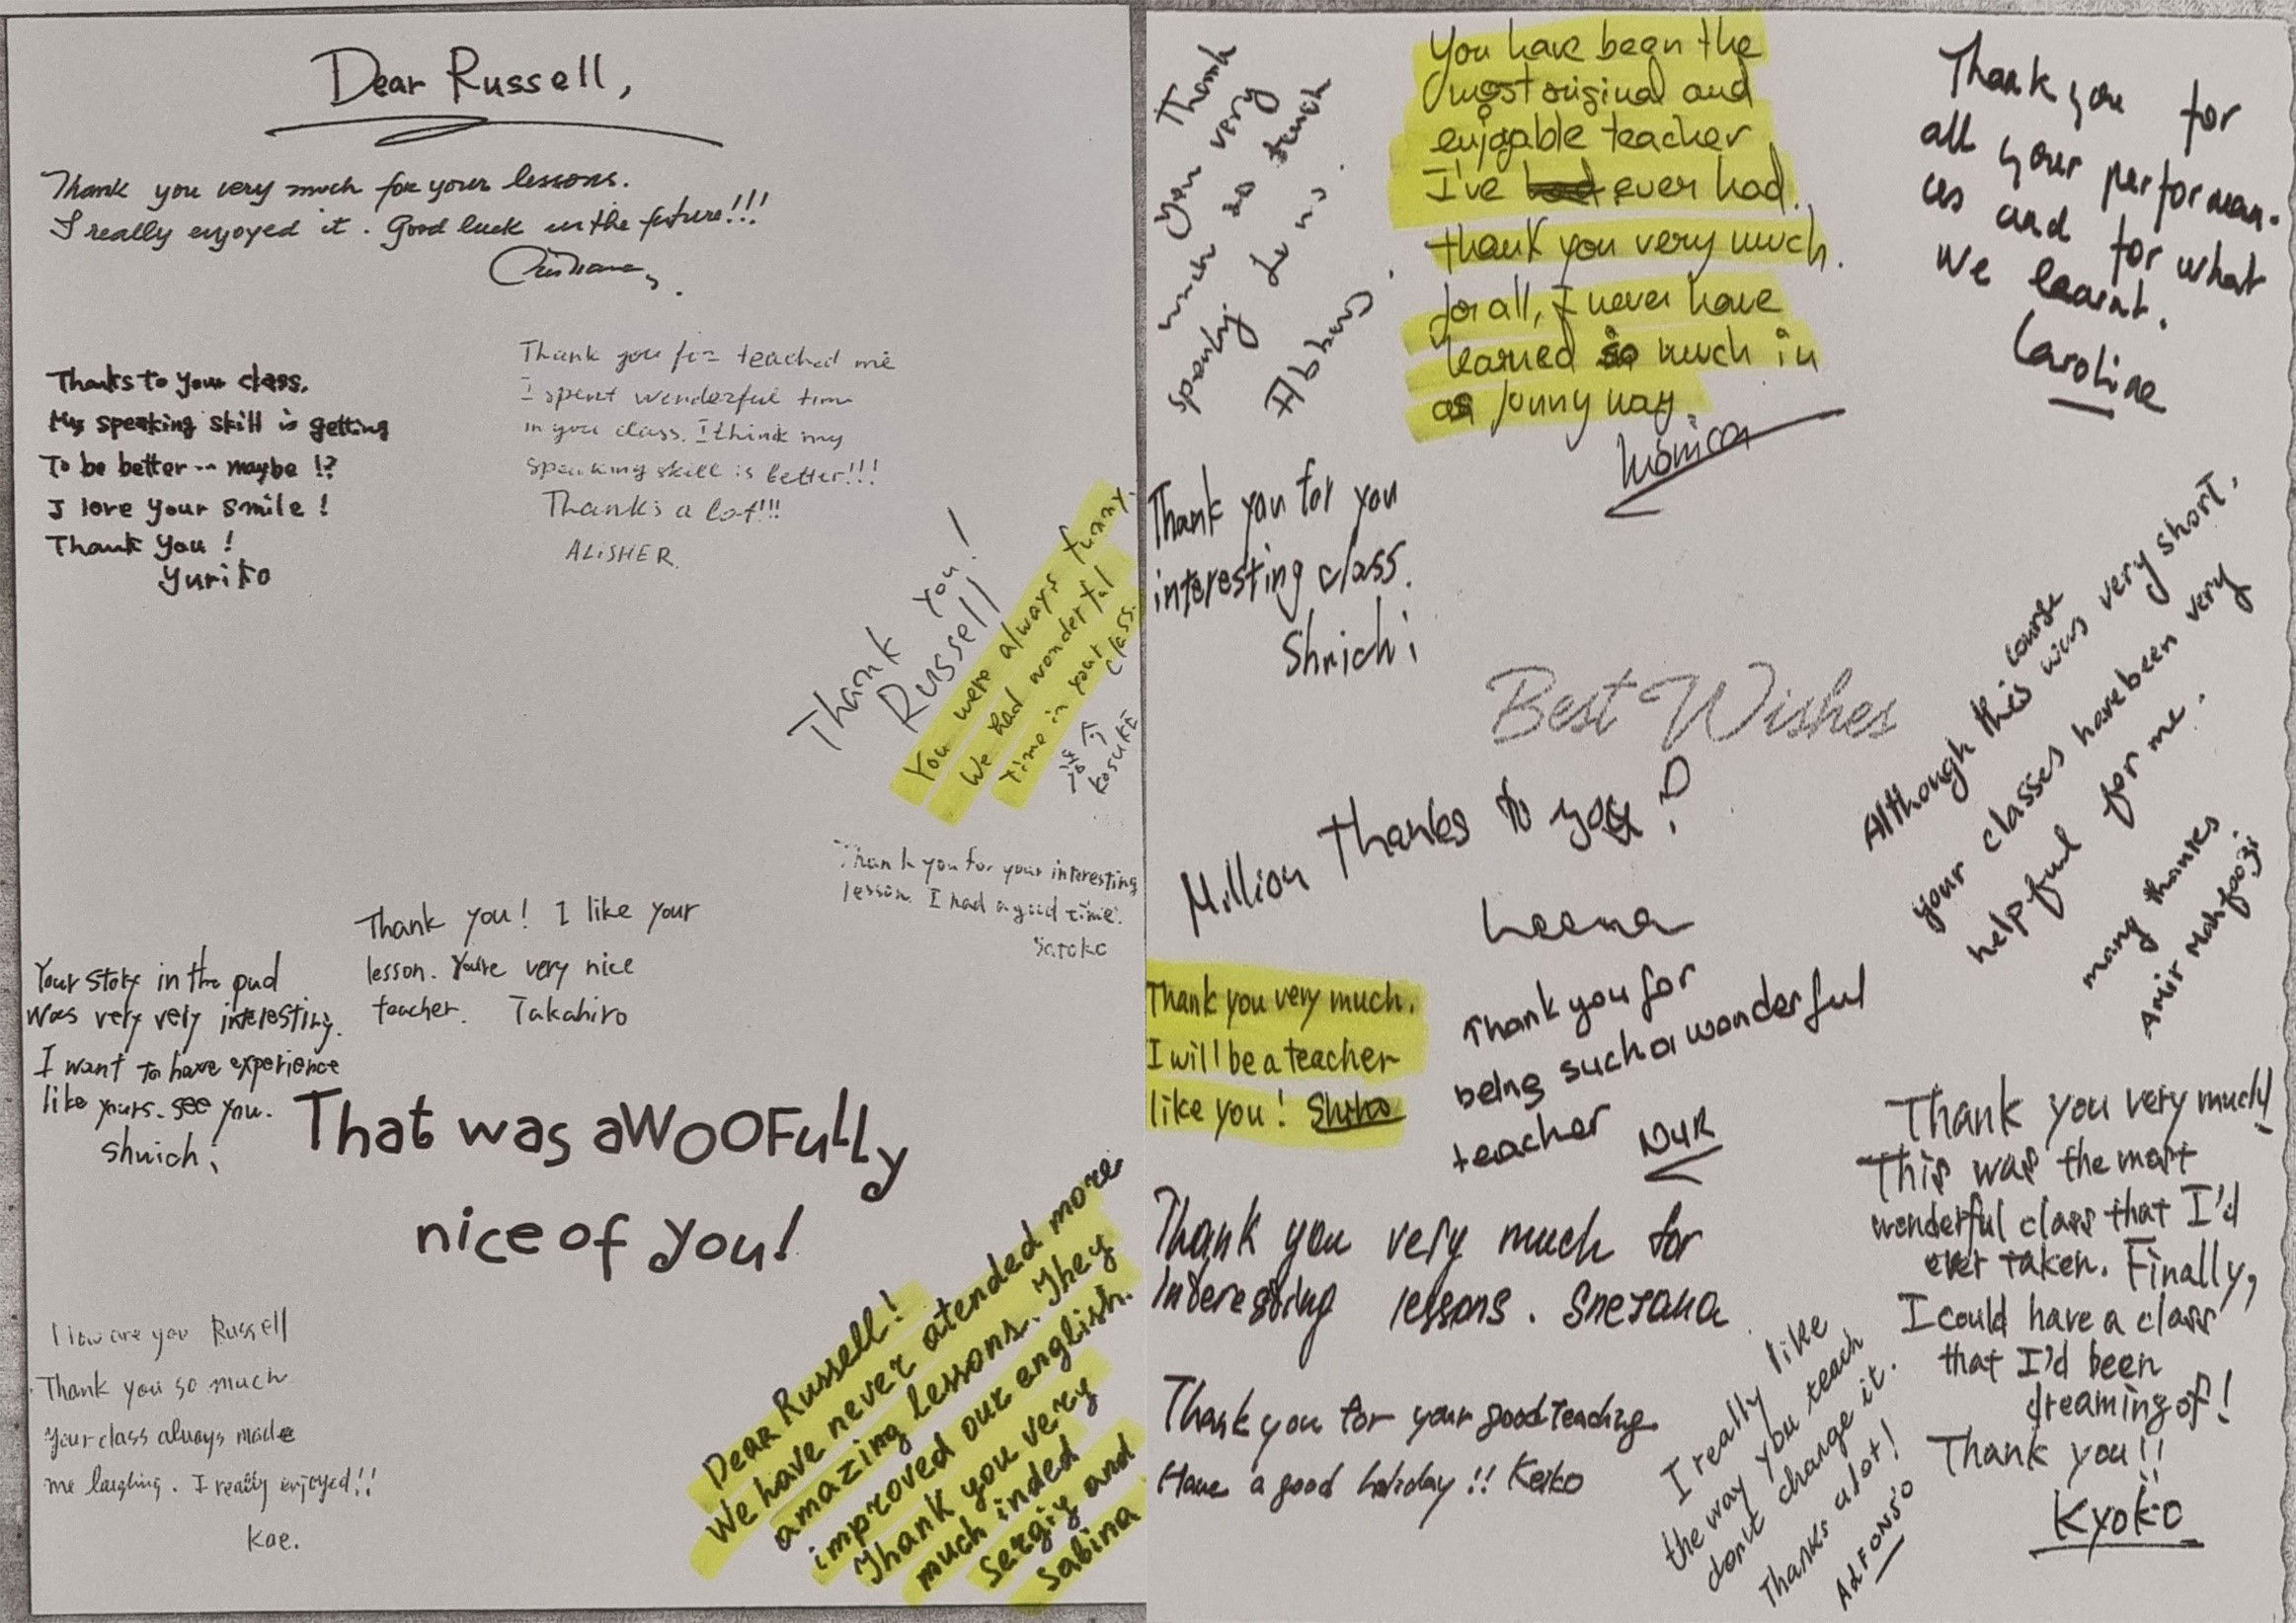 Dear Russell,
Thank you very much for your lessons.
I really enjoyed it. Good luck in the future!!!
Thanks to your class,
My speaking skill is getting
To be better -- maybe !?
I love your smile !
Thank you !
Yuriko
Thank you for teached me
I spent wonderful time
in you class. I think my
speaking skill is better!!!
Thanks a lot!!!
ALISHER.
Thank you!
Russell
You were always funny.
We had wonderful
time in your class.
KOSUKE
Thank you for your interesting
lesson. I had a good time.
Satoko
Thank you! I like your
lesson. You're very nice
teacher. Takahiro
Your story in the pud
was very very interesting.
I want to have experience
like yours. see you.
Shuichi
That was aWOOFully
nice of you!
How are you Russell
Thank you so much
Your class always made
me laughing. I really enjoyed!!
Kae.
Dear Russell!
We have never atended more
amazing lessons. They
improved our english.
Thank you very
much inded
Sergiy and
Sabina
Thank
you very
much to teach
speaking to us.
You have begn the
most original and
enjoyable teacher
I've had ever had.
thank you very much.
for all, I never have
learned so much in
as funny way.
Monica
Thank you for
all your performan-
ces and for what
we learnt.
Caroline
Thank you for you
interesting class.
Shuichi
Best Wishes
Although this course was very short,
your classes have been very
helpful for me.
many thanks
Amir Mahfoozi
Million Thanks to you!
Leena
Thank you very much.
I will be a teacher
like you! Shiho
Thank you for
being such a wonderful
teacher NUR
Thank you very much for
interesting lessons. Snezana
Thank you for your good teaching
Have a good holiday!! Keiko
I really like
the way you teach
don't change it.
Thanks alot!
ALFONSO
Thank you very much!
This was the most
wonderful class that I'd
ever taken. Finally,
I could have a class
that I'd been
dreaming of!
Thank you!!
Kyoko